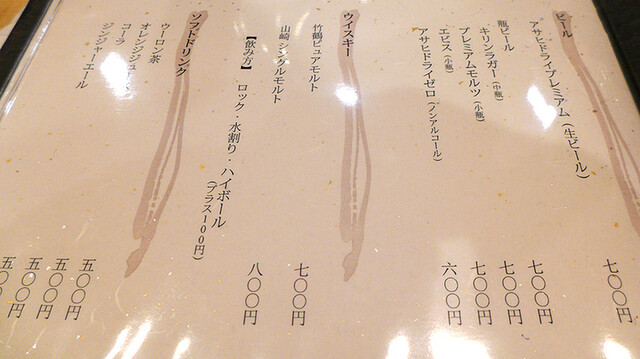 ビール
アサヒドライプレミアム(生ビール) 七〇〇円
瓶ビール
キリンラガー(中瓶) 七〇〇円
プレミアムモルツ(小瓶) 七〇〇円
エビス(小瓶) 七〇〇円
アサヒドライゼロ(ノンアルコール) 六〇〇円
ウイスキー
竹鶴ピュアモルト 七〇〇円
山崎シングルモルト 八〇〇円
【飲み方】 ロック・水割り・ハイボール
(プラス一〇〇円)
ソフトドリンク
ウーロン茶 五〇〇円
オレンジジュース 五〇〇円
コーラ 五〇〇円
ジンジャーエール 五〇〇円